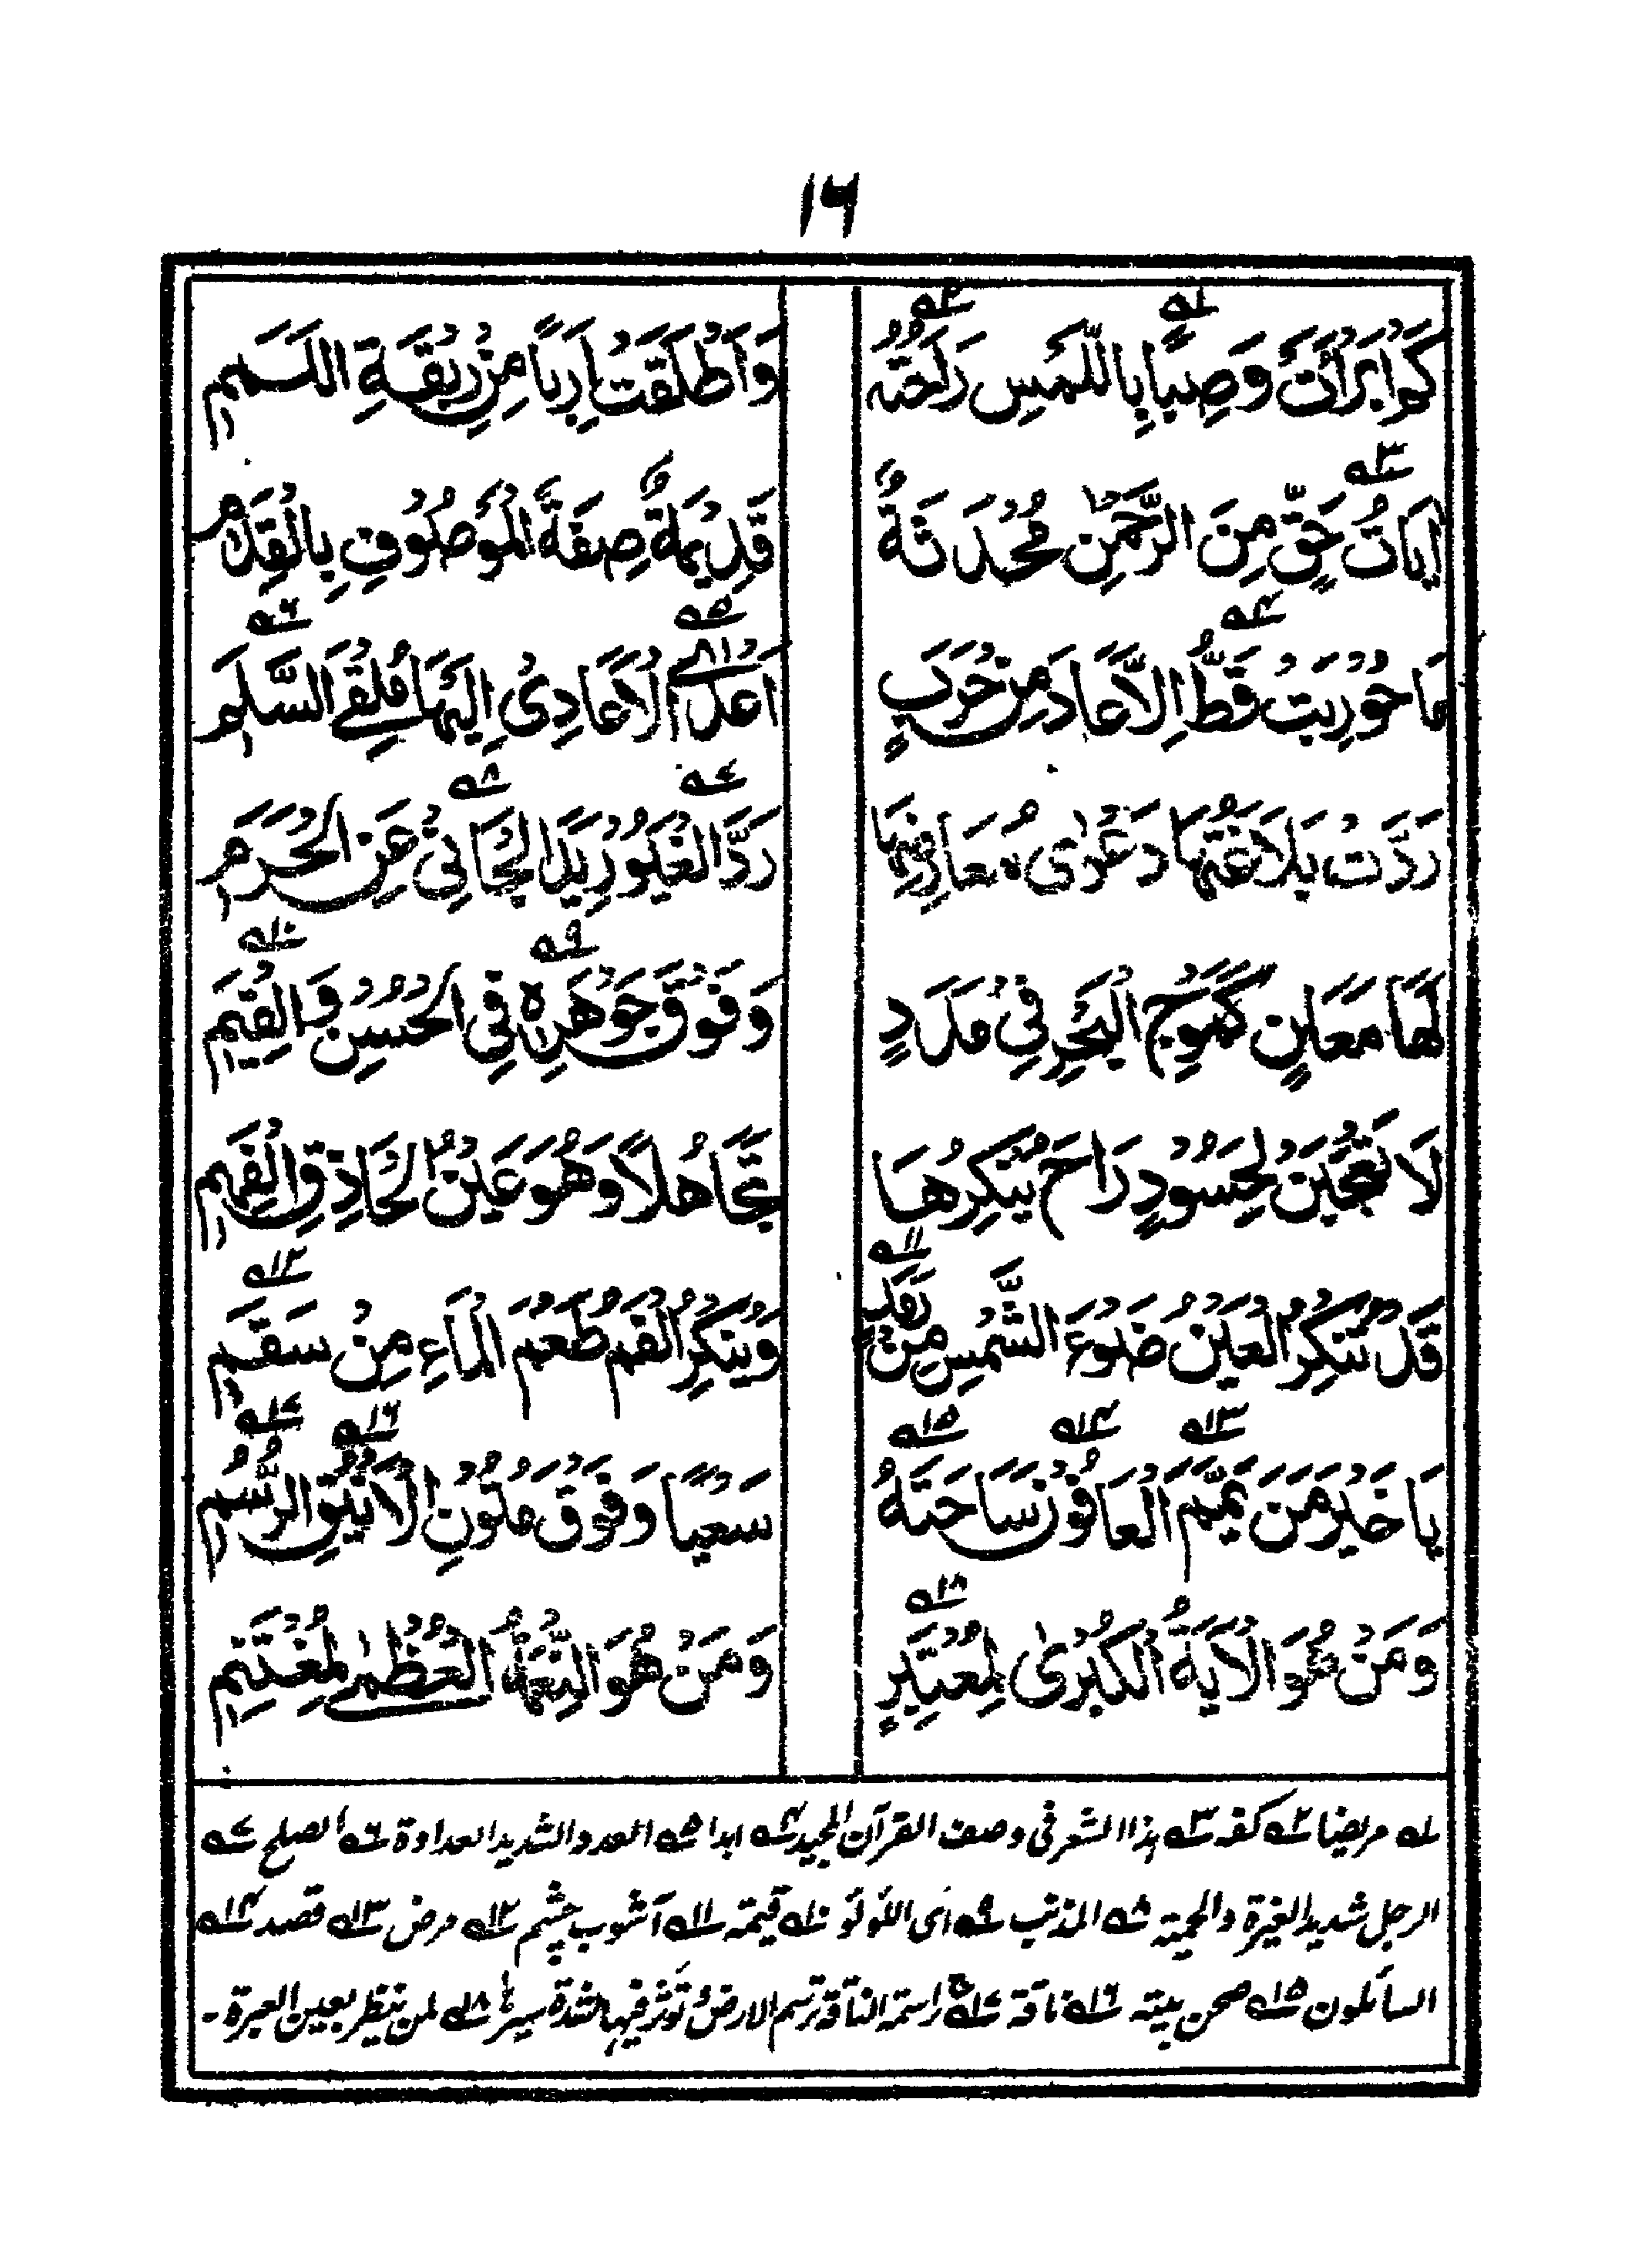 ١٦
كَمْ اَبْرَأَتْ وَصِبًا بِاللَّمْسِ رَاحَتُهٗ وَاَطْلَقَتْ اَرِبًا مِنْ رِبْقَةِ اللَّمَمِ
اٰيَاتُ حَقٍّ مِنَ الرَّحْمٰنِ مُحْدَثَةٌ قَدِيْمَةٌ صِفَةُ الْمَوْصُوْفِ بِالْقِدَمِ
مَا حُوْرِبَتْ قَطُّ اِلَّا عَادَ مِنْ حَرَبٍ اَعْدَى الْاَعَادِيْ اِلَيْهَا مُلْقِيَ السَّلَمِ
رَدَّتْ بَلَاغَتُهَا دَعْوٰى مُعَارِضِهَا رَدَّ الْغَيُوْرِ يَدَ الْجَانِيْ عَنِ الْحُرَمِ
لَهَا مَعَانٍ كَمَوْجِ الْبَحْرِ فِيْ مَدَدٍ وَفَوْقَ جَوْهَرِهٖ فِي الْحُسْنِ وَالْقِيَمِ
لَا تَعْجَبَنْ لِحَسُوْدٍ رَاحَ يُنْكِرُهَا تَجَاهُلًا وَهُوَ عَيْنُ الْحَاذِقِ الْفَهِمِ
قَدْ تُنْكِرُ الْعَيْنُ ضَوْءَ الشَّمْسِ مِنْ رَمَدٍ وَيُنْكِرُ الْفَمُ طَعْمَ الْمَاءِ مِنْ سَقَمِ
يَا خَيْرَ مَنْ يَمَّمَ الْعَافُوْنَ سَاحَتَهٗ سَعْيًا وَفَوْقَ مُتُوْنِ الْاَيْنُقِ الرُّسُمِ
وَمَنْ هُوَ الْاٰيَةُ الْكُبْرٰى لِمُعْتَبِرٍ وَمَنْ هُوَ النِّعْمَةُ الْعُظْمٰى لِمُغْتَنِمِ
١ مريضا ٢ كفه ٣ هذا الشعر فى وصف القرآن المجيد ٤ ابدا ٥ العدو الشديد العداوة ٦ الصلح ٧
الرجل شديد الغيرة والحمية ٨ المذنب ٩ اى اللؤلؤ ١٠ قيمته ١١ آشوب چشم ١٢ مرض ١٣ قصد ١٤
السائلون ١٥ صحن بيته ١٦ ناقة ١٧ الناقة ترسم الارض تؤثر فيها لشدة سيرها ١٨ لمن ينظر بعين العبرة۔